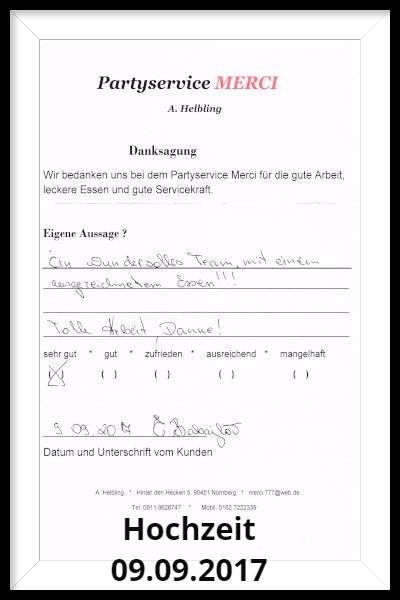 Partyservice MERCI
A. Helbling
Danksagung
Wir bedanken uns bei dem Partyservice Merci für die gute Arbeit,
leckere Essen und gute Servicekraft.
Eigene Aussage ?
Ein wundervolles Team, mit einem
ausgezeichnetem Essen!!!
Tolle Arbeit, Danke!
sehr gut * gut * zufrieden * ausreichend * mangelhaft
(X) ( ) ( ) ( ) ( )
9.09.2017
Datum und Unterschrift vom Kunden
A. Helbling * Hinter den Hecken 5, 90451 Nürnberg * merci.777@web.de
Tel: 0911 9626747 * Mobil: 0162 7222339
Hochzeit
09.09.2017